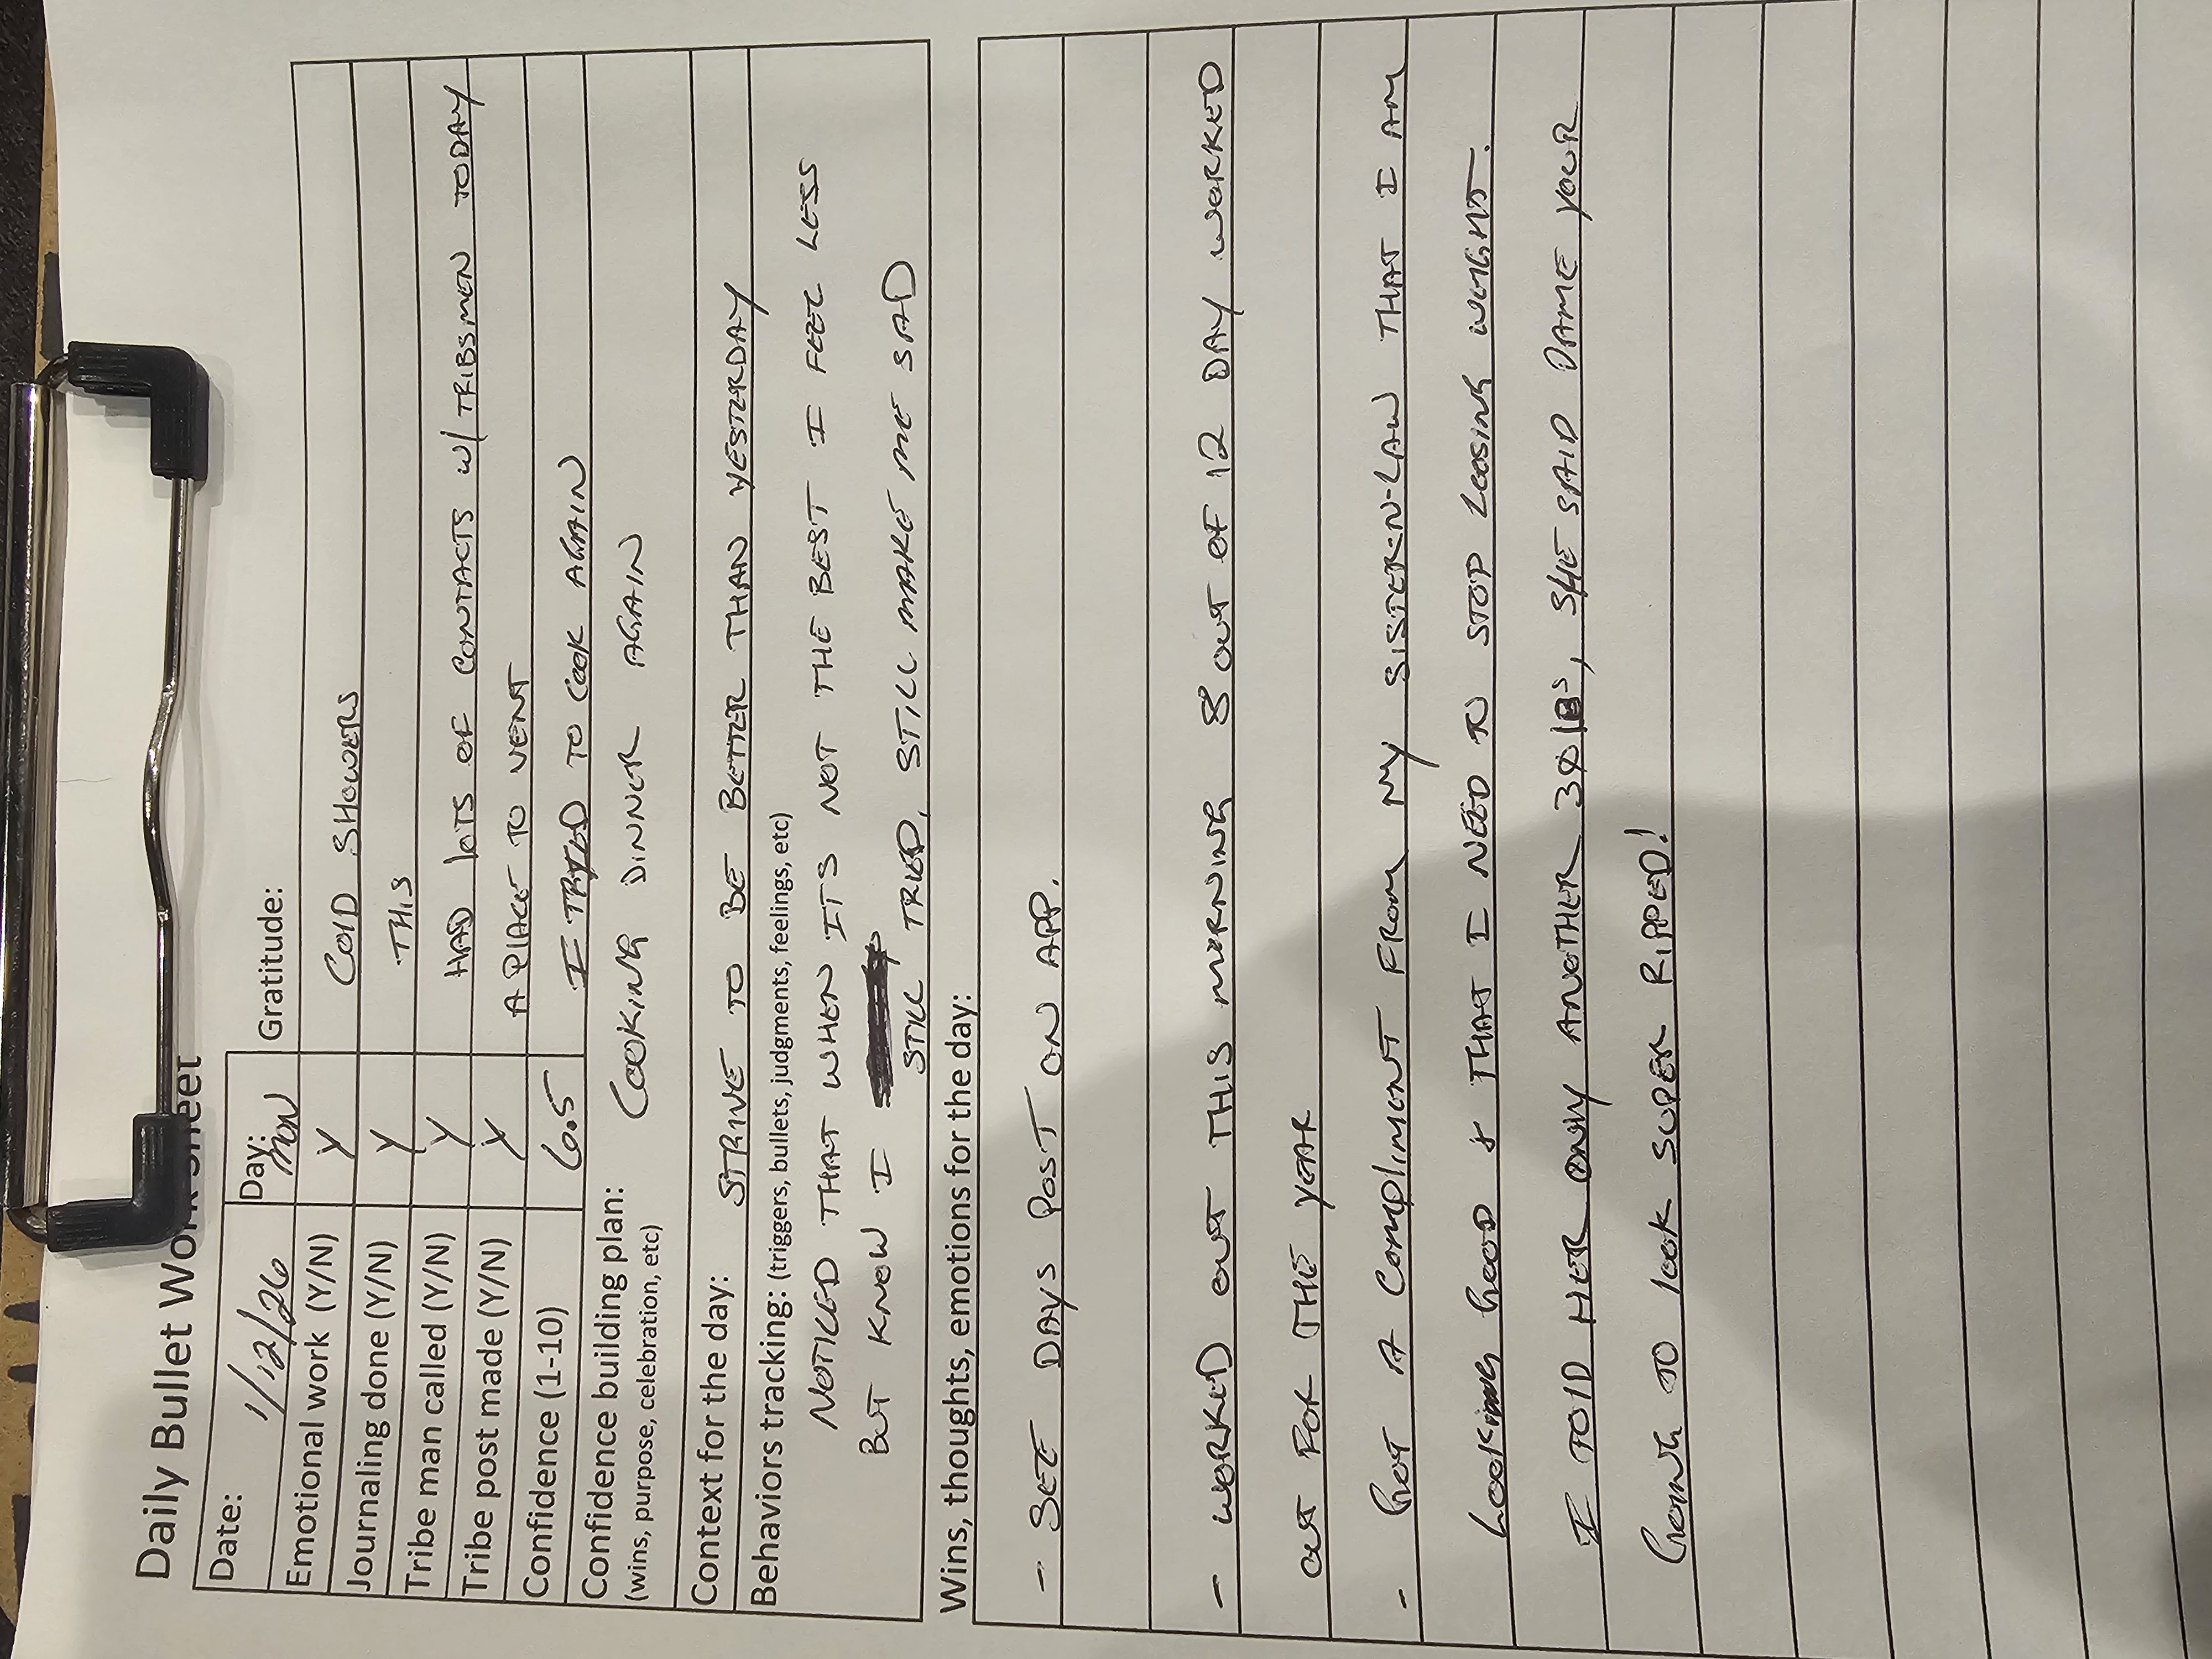 Daily Bullet Work Sheet
Date: 1/12/26 Day: MON Gratitude:
Emotional work (Y/N) Y COLD SHOWERS
Journaling done (Y/N) Y THIS
Tribe man called (Y/N) Y HAD LOTS OF CONTACTS W/ TRIBSMEN TODAY
Tribe post made (Y/N) Y A PLACE TO VENT
Confidence (1-10) 6.5 I TRYED TO COOK AGAIN
Confidence building plan: COOKING DINNER AGAIN
(wins, purpose, celebration, etc)
Context for the day: STRIVE TO BE BETTER THAN YESTERDAY
Behaviors tracking: (triggers, bullets, judgments, feelings, etc)
NOTICED THAT WHEN ITS NOT THE BEST I FEEL LESS
BUT KNOW I STILL TRIED, STILL MAKE ME SAD
Wins, thoughts, emotions for the day:
- SEE DAYS POST ON APP.
- WORKED OUT THIS MORNING 8 OUT OF 12 DAY WORKED
OUT FOR THE YEAR
- GOT A COMPLIMENT FROM MY SISTER-N-LAW THAT I AM
LOOKING GOOD & THAT I NEED TO STOP LOOSING WEIGHT.
I TOLD HER ONLY ANOTHER 30 LBS, SHE SAID DAME YOUR
GOING TO LOOK SUPER RIPPED!